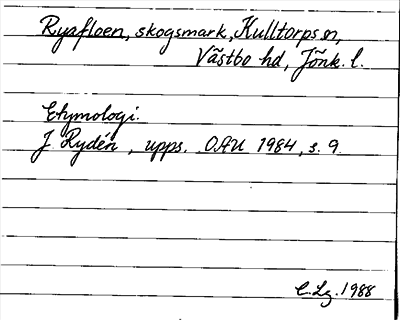 Ryafloen, skogsmark, Kulltorps sn,
Västbo hd, Jönk. l.
Etymologi.
J Rydén, upps. OAU 1984, s. 9.
C. Lg. 1988